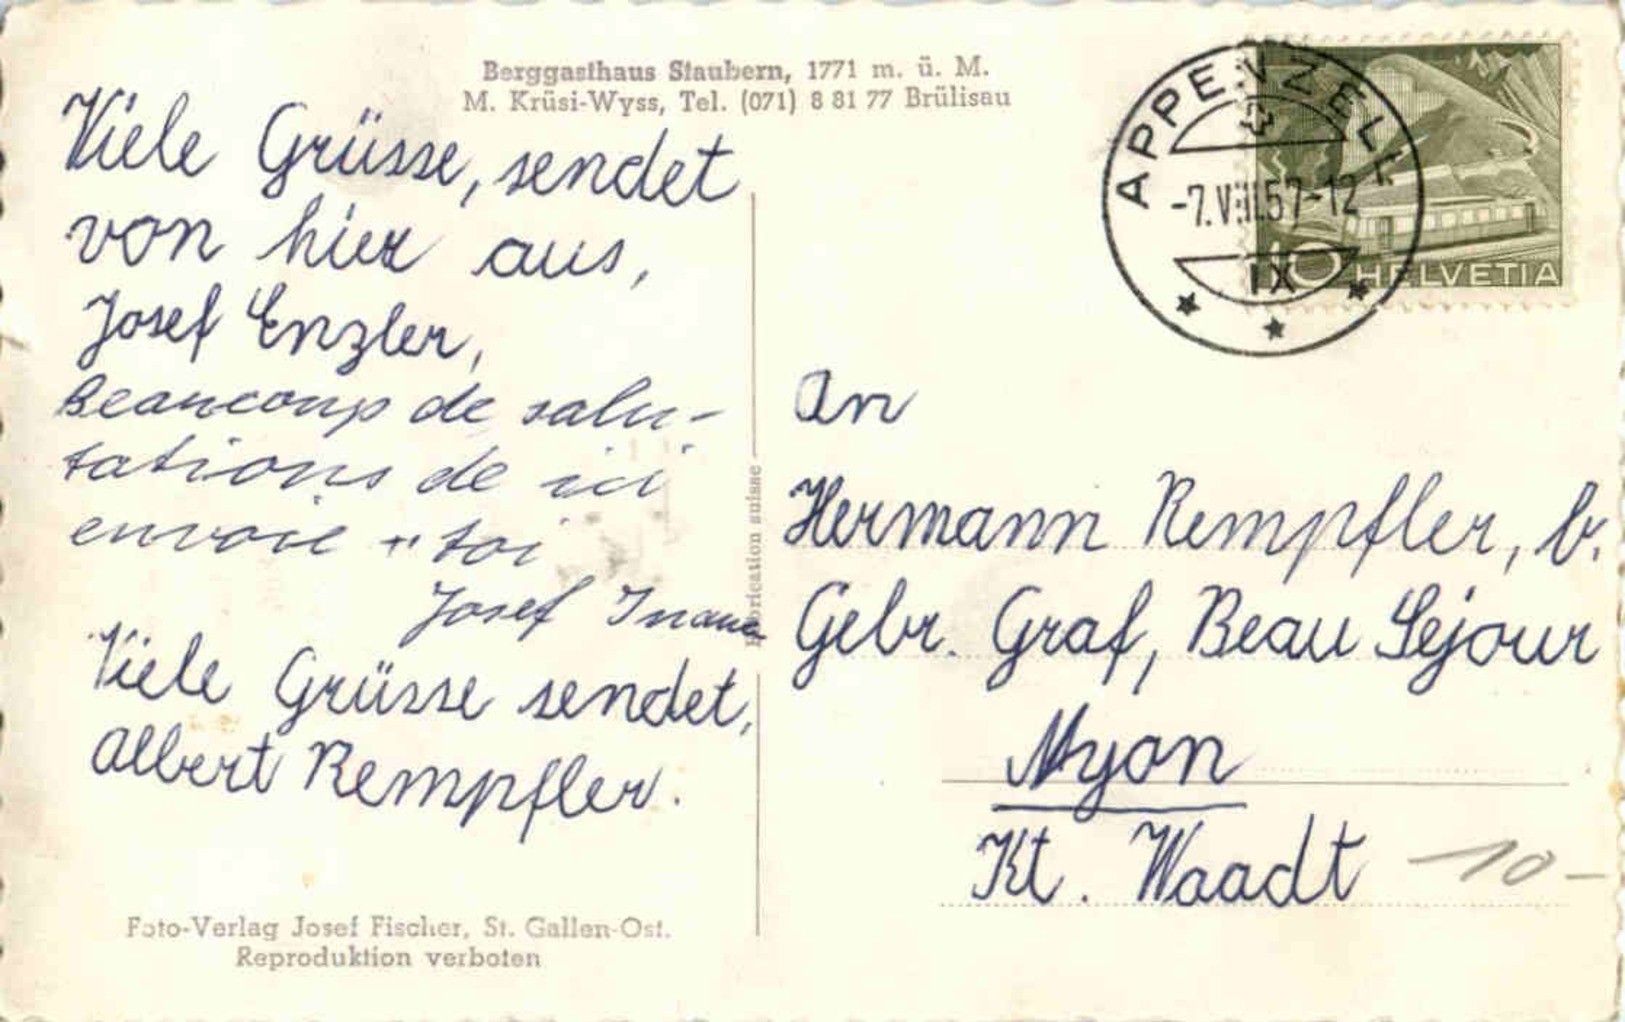 Berggasthaus Staubern, 1771 m. ü. M.
M. Krüsi-Wyss, Tel. (071) 8 81 77 Brülisau
Viele Grüsse, sendet
von hier aus,
Josef Enzler,
Beaucoup de salu-
tations de ici
envoie " toi
Josef
Viele Grüsse sendet,
Albert Rempfler.
Foto-Verlag Josef Fischer, St. Gallen-Ost.
Reproduktion verboten
Fabrication suisse
APPENZELL
-7.VIII.57-12
IX
10 HELVETIA
An
Hermann Rempfler, b.
Gebr. Graf, Beau Séjour
Nyon
Kt. Waadt
10-